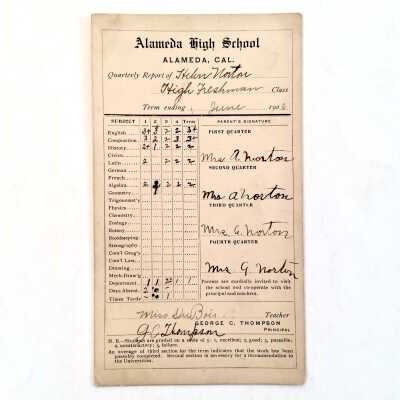 Alameda High School
ALAMEDA, CAL.
Quarterly Report of Helen Norton
High Freshman Class
Term ending June 190
SUBJECT 1 2 3 4 Term PARENT'S SIGNATURE
English
Composition FIRST QUARTER
History
Civics Mrs Norton
Latin 2 SECOND QUARTER
German
French
Algebra 2 2 2 2
Geometry Mrs Norton
Trigonomet'y THIRD QUARTER
Physics
Chemistry
Zoology
Botany Mrs G. Norton
Bookkeeping FOURTH QUARTER
Stenography
Com'l Geog'y
Com'l Law Mrs G. Norton
Drawing
Mech. Draw'g
Deportment 1 1 2 1 1 Parents are cordially invited to visit
Days Absent the school and co-operate with the
Times Tardy principal and teachers.
Miss Du Bois Teacher
GEORGE C. THOMPSON
G C Thompson PRINCIPAL
N. B.—Students are graded on a scale of 5: 1, excellent; 2, good; 3, passable;
4, unsatisfactory; 5, failure.
An average of third section for the term indicates that the work has been
passably completed. Second section is necessary for a recommendation to
the Universities.